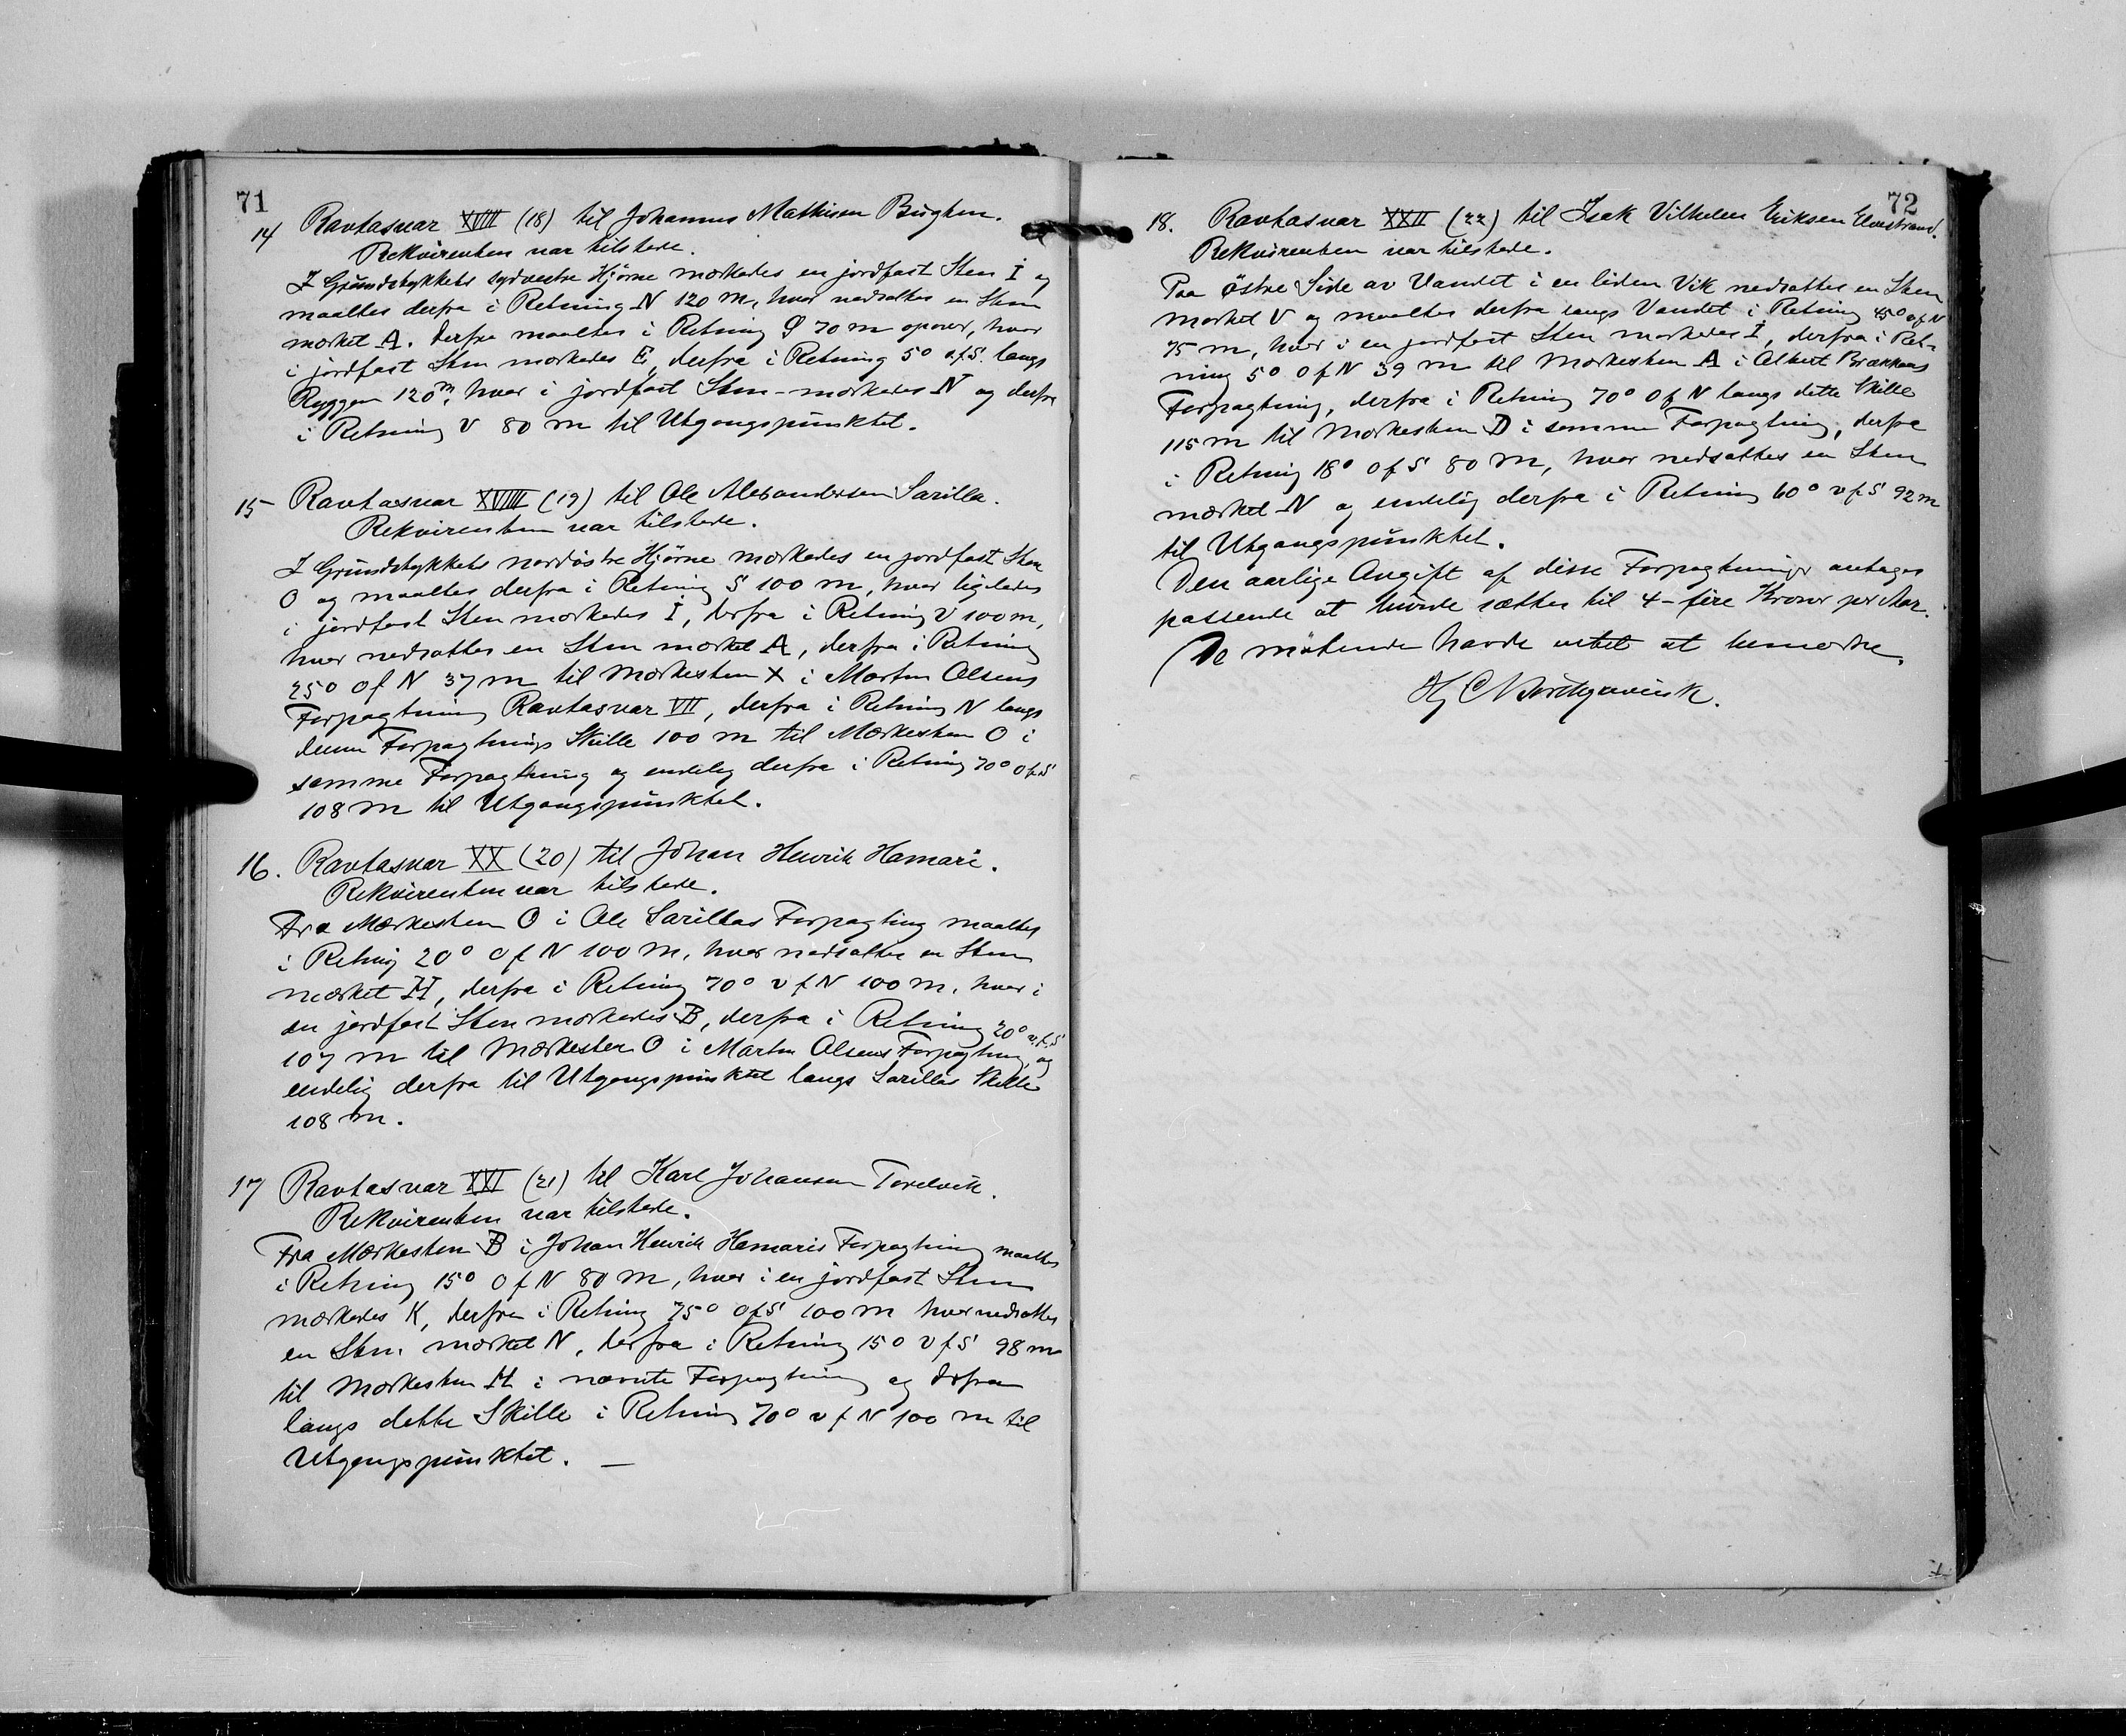 71
14 Ravtasvar XVIII (18) til Johannes Mathisen Bugten.
Rekvirenten var tilstede.
I Grundstykkets sydvestre Hjørne merkedes en jordfast Sten I og
maaltes derfra i Retning N 120 m, hvor nedsattes en Sten
merket A. Derfra maaltes i Retning Ø 70 m opover, hvor
i jordfast Sten merkedes E, derfra i Retning 5° ø.f.S. langs
Ryggen 120 m, hvor i jordfast Sten merkedes N og derfra
i Retning V 80 m til Utgangspunktet.
15 Ravtasvar XVIIII (19) til Ole Alexandersen Sarilla.
Rekvirenten var tilstede.
I Grundstykkets nordøstre Hjørne merkedes en jordfast Sten
O og maaltes derfra i Retning S 100 m, hvor ligeledes
i jordfast Sten merkedes I, derfra i Retning V 100 m,
hvor nedsattes en Sten merket A, derfra i Retning
25° Ø f N 37 m til Merkesten X i Morten Olsens
Forpagtning Ravtasvar VII, derfra i Retning N langs
denne Forpagtnings Skille 100 m til Merkesten O i
samme Forpagtning og endelig derfra i Retning 70° Ø f S
108 m til Utgangspunktet.
16. Ravtasvar XX (20) til Johan Henrik Hamari.
Rekvirenten var tilstede.
Fra Merkesten O i Ole Sarillas Forpagting maaltes
i Retnig 20° Ø f N 100 m, hvor nedsattes en Sten
merket H, derfra i Retning 70° v f N 100 m, hvor i
en jordfast Sten merkedes B, derfra i Retning 20° v.f.S
107 m til Merkesten O i Morten Olsens Forpagtning og
endelig derfra til Utgangspunktet langs Sarillas Skille
108 m.
17 Ravtasvar XXI (21) til Karl Johansen Torelvik.
Rekvirenten var tilstede.
Fra Merkesten B i Johan Henrik Hamaris Forpagtning maaltes
i Retning 15° Ø f N 80 m, hvor i en jordfast Sten
merkedes K, derfra i Retning 75° Ø f S 100 m hvor nedsattes
en Sten merket N, derfra i Retning 15° V f S 98 m
til Merkesten H i nævnte Forpagtning og derfra
langs dette Skille i Retning 70° v f N 100 m til
Utgangspunktet. —
72
18. Ravtasvar XXII (22) til Isak Vilhelm Eriksen Elvestrand.
Rekvirenten var tilstede.
Paa østre Side av Vandet i en liden Vik nedsattes en Sten
merket V og maaltes derfra langs Vandet i Retning 45° ø f N
75 m, hvor i en jordfast Sten merkedes I, derfra i Ret-
ning 5° Ø f N 39 m til Merkesten A i Albert Brækkans
Forpagtning, derfra i Retning 70° Ø f N langs dette Skille
115 m til Merkesten D i samme Forpagtning, derfra
i Retnig 18° Ø f S 80 m, hvor nedsattes en Sten
merket N og endelig derfra i Retning 60° v f S 92 m
til Utgangspunktet.
Den aarlige Avgift af disse Forpagtninger antages
passende at burde sættes til 4 - fire Kroner per Aar.
De møtende havde intet at bemerke.
Hj C